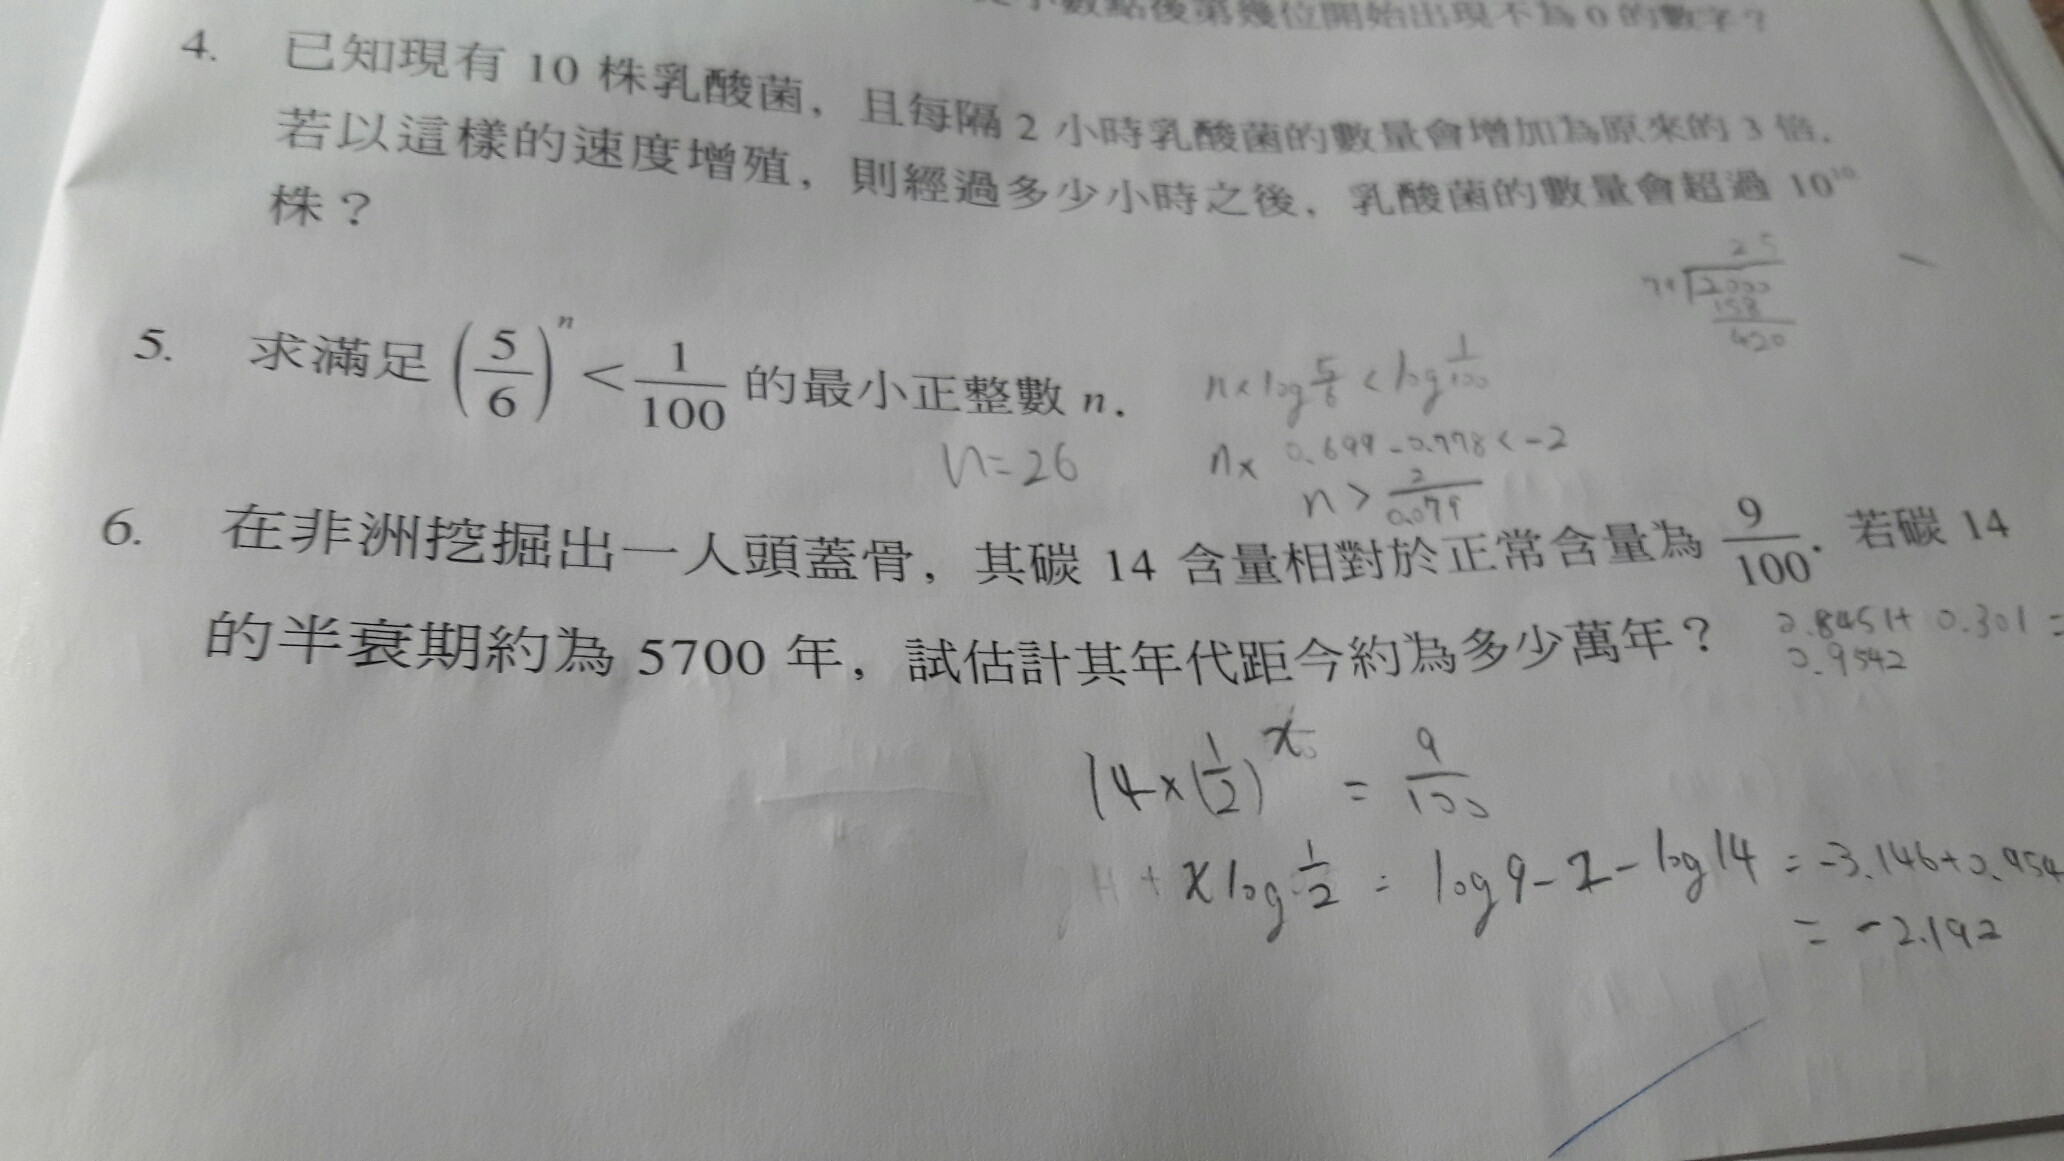 數點後第幾位開始出現不為 0 的數字？
4. 已知現有 10 株乳酸菌，且每隔 2 小時乳酸菌的數量會增加為原來的 3 倍．
若以這樣的速度增殖，則經過多少小時之後，乳酸菌的數量會超過 10¹⁰
株？
25
79 2000
158
420
5. 求滿足 (5/6)ⁿ < 1/100 的最小正整數 n．
n× log 5/6 < log 1/100
n× 0.699 - 0.778 < -2
n=26
n > 2/0.079
6. 在非洲挖掘出一人頭蓋骨，其碳 14 含量相對於正常含量為 9/100．若碳 14
的半衰期約為 5700 年，試估計其年代距今約為多少萬年？
0.8451+ 0.301 =
0.9542
14×(1/2)ˣ = 9/100
+ x log 1/2 = log 9 - 2 - log 14 = -3.146+0.954
= -2.192